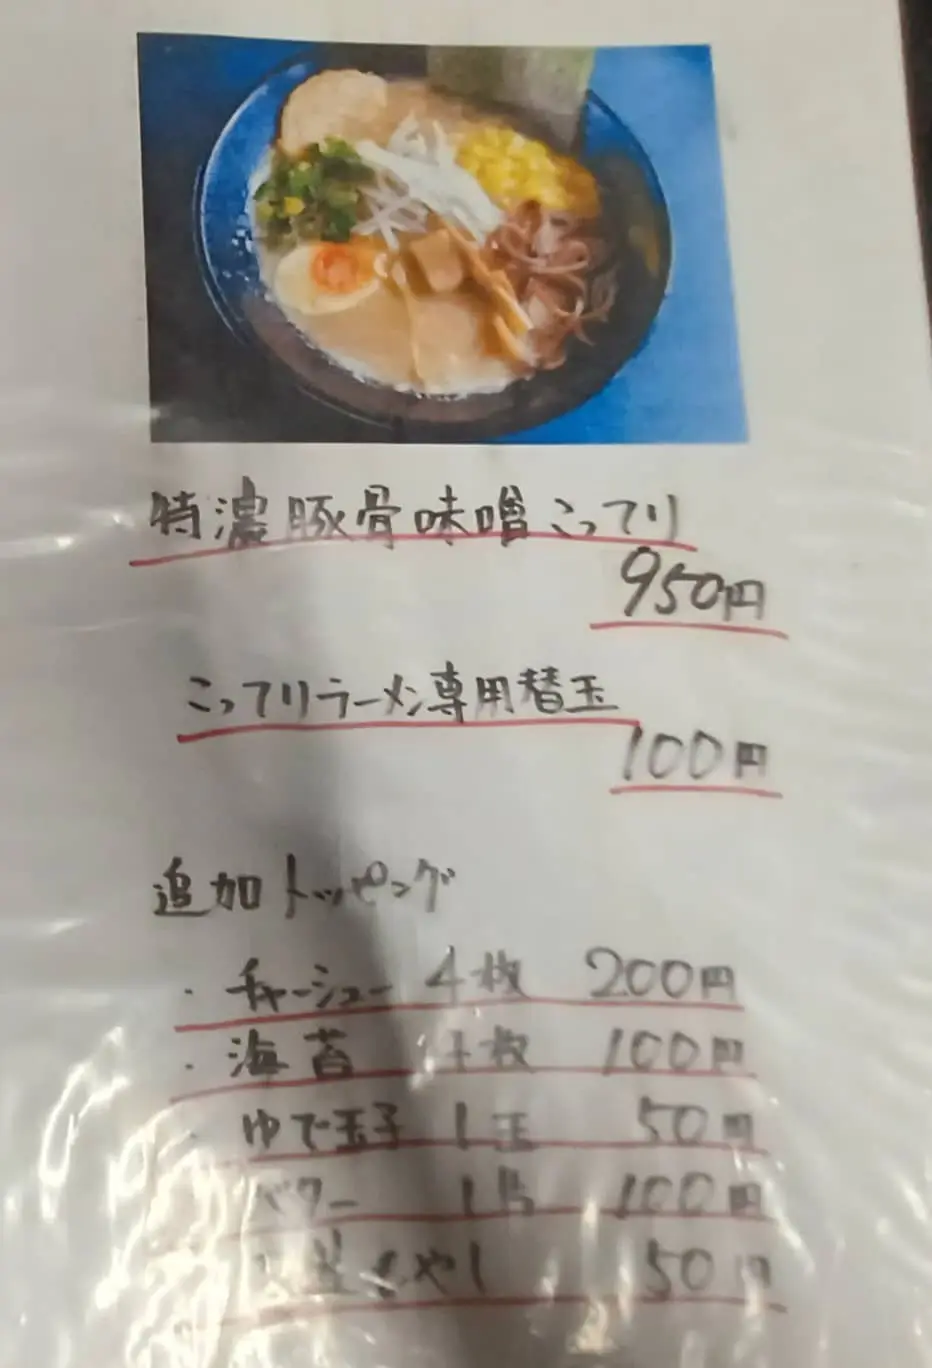 特濃豚骨味噌こってり
950円
こってりラーメン専用替玉
100円
追加トッピング
・チャーシュー 4枚 200円
・海苔 4枚 100円
ゆで玉子 1玉 50円
バター 1片 100円
もやし 50円